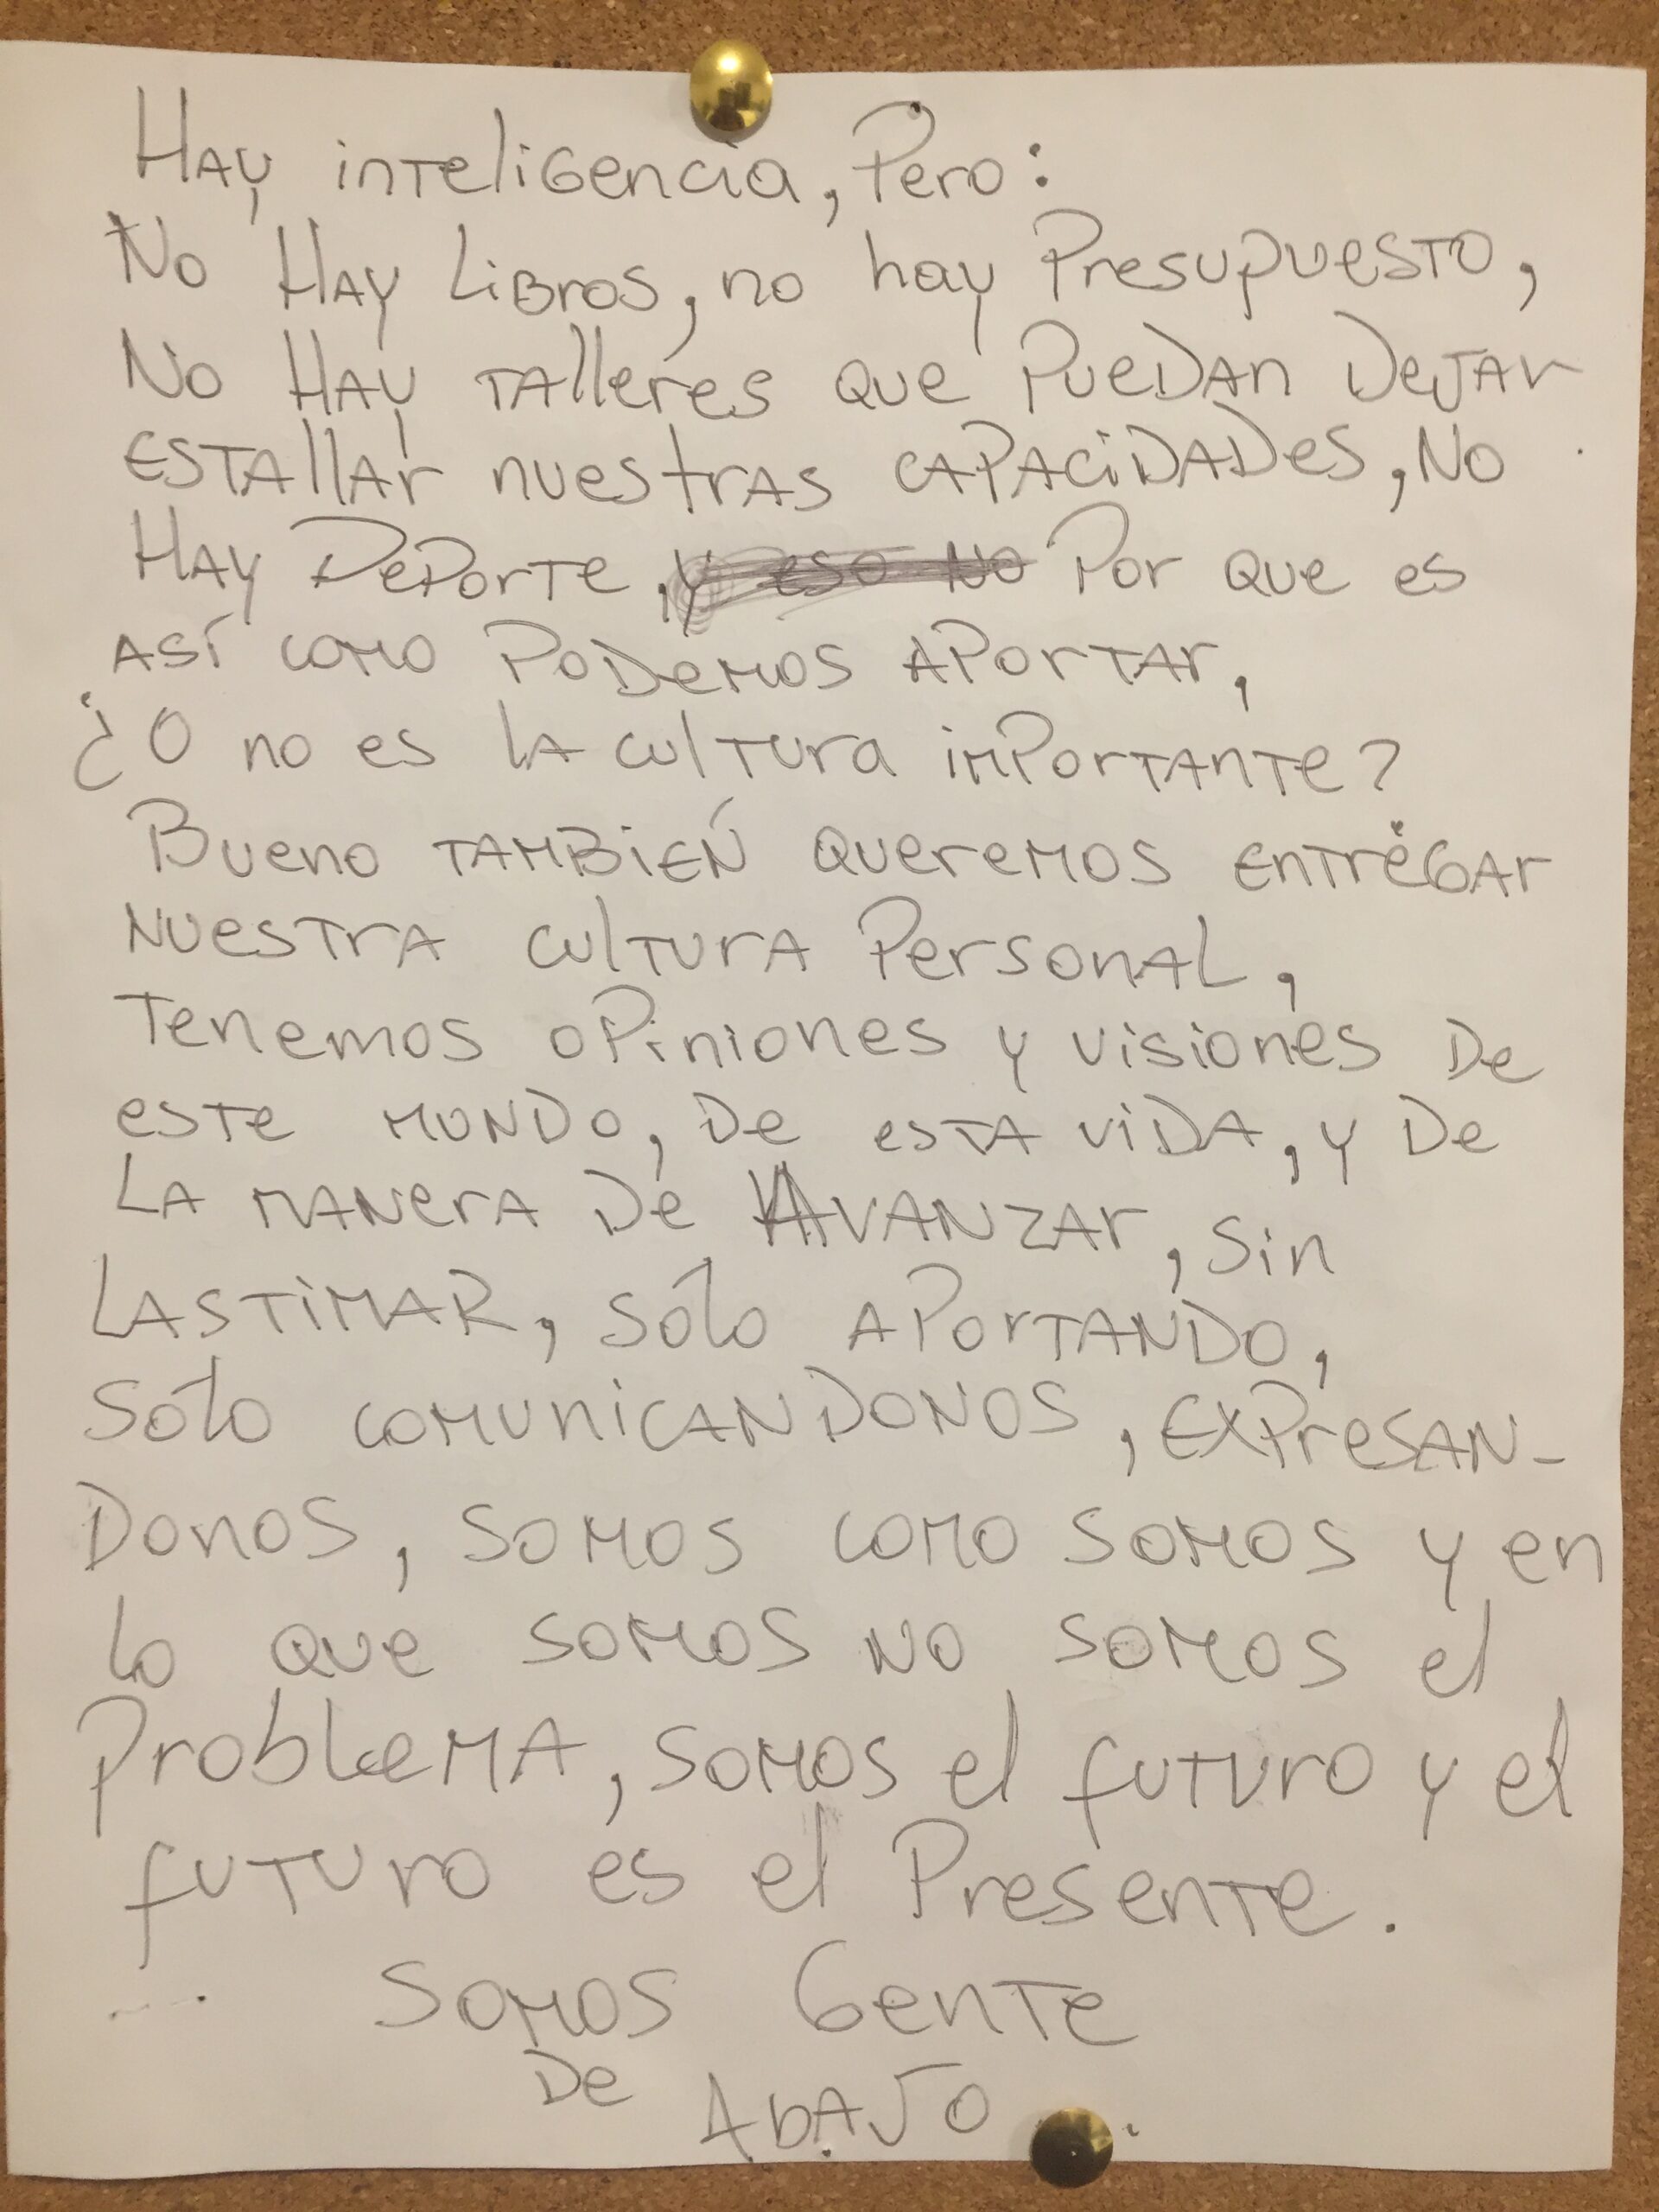 Hay inteligencia, Pero:
No Hay Libros, no hay Presupuesto,
No Hay talleres que Puedan Dejar
estallar nuestras capacidades, No
Hay Deporte, y eso no Por que es
así como Podemos aportar,
¿O no es la cultura importante?
Bueno también queremos entregar
nuestra cultura Personal,
Tenemos oPiniones y visiones De
este mundo, De esta vida, y De
La manera De Avanzar, sin
Lastimar, sólo aportando,
sólo comunicandonos, expresan-
Donos, somos como somos y en
lo que somos no somos el
Problema, somos el futuro y el
futuro es el Presente.
... Somos Gente
De
Abajo.